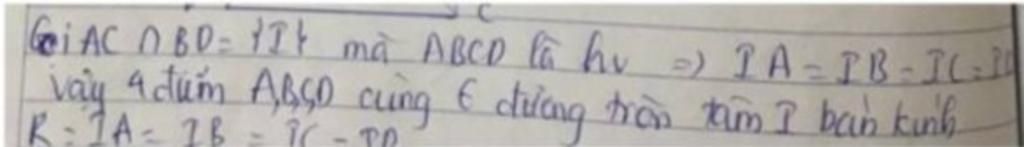 C
Gọi AC ∩ BD = {I} mà ABCD là hv => IA = IB = IC = ID
vậy 4 điểm A,B,C,D cùng € đường tròn tâm I bán kính
R = IA = IB = IC = ID